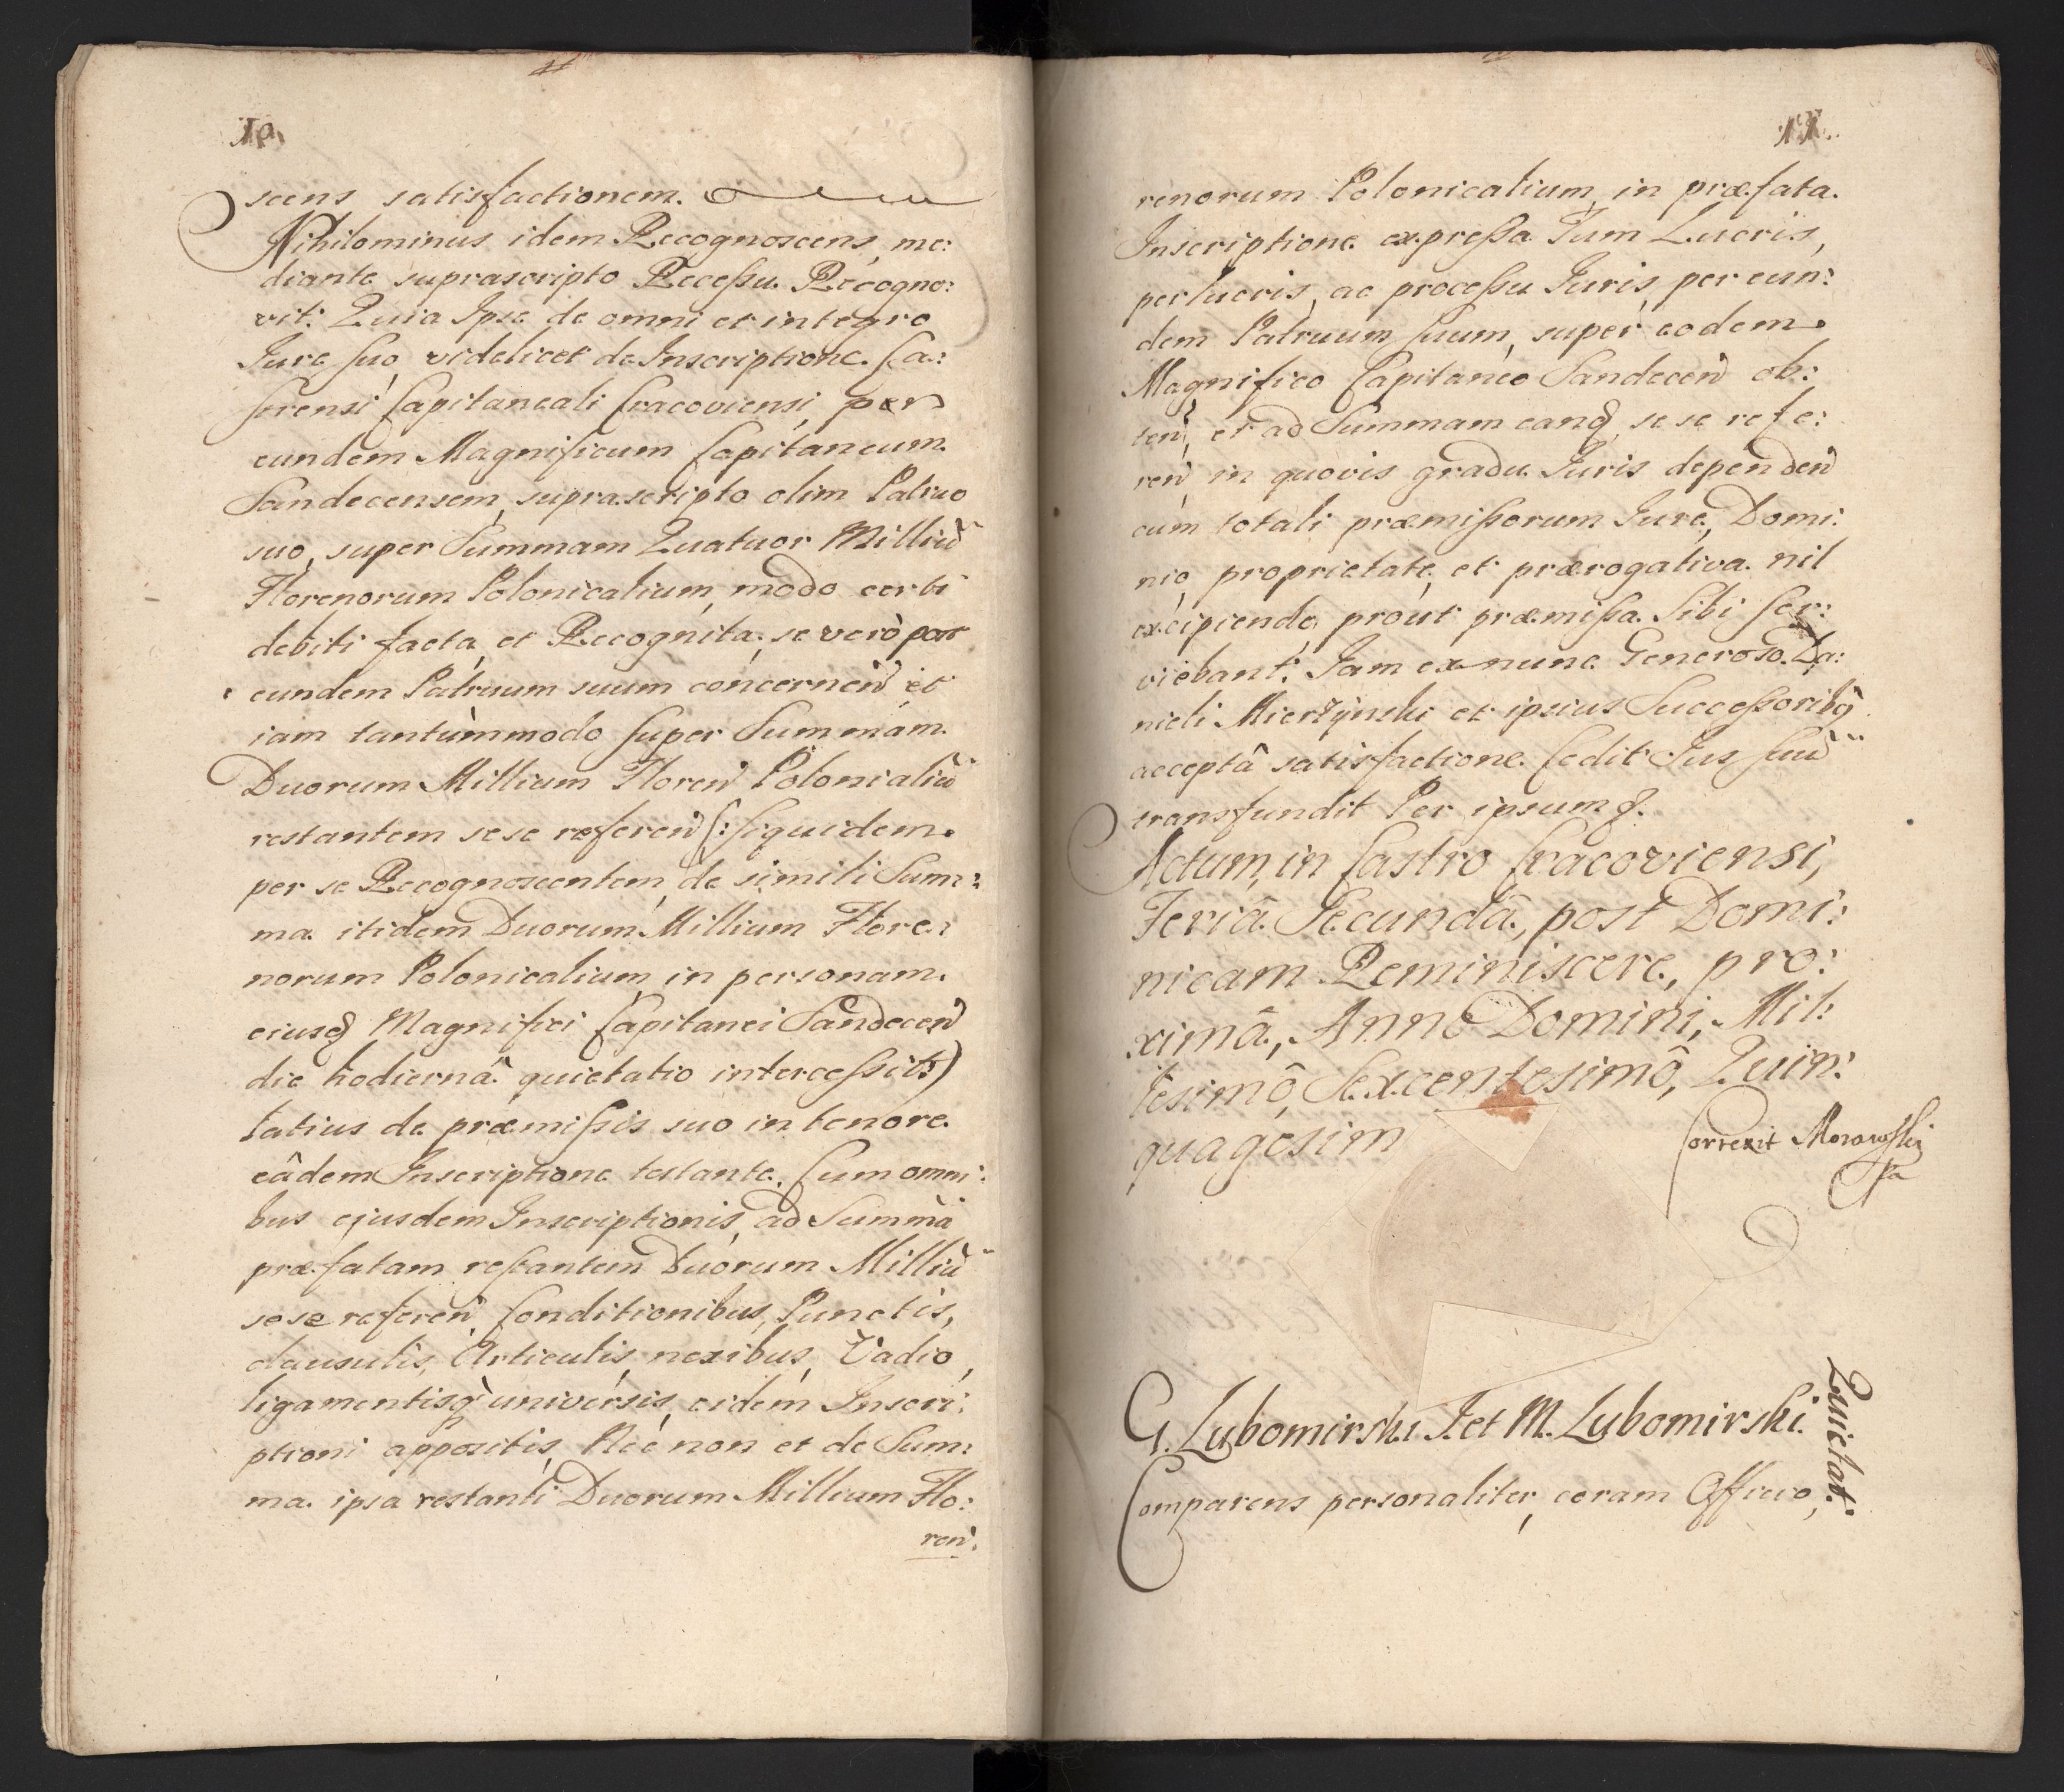 10.
scens satisfactionem.
Nihilominus idem Recognoscens, me:
diante suprascripto Recessu. Recogno:
vit: Quia Ipse de omni et integro
Jure suo, videlicet de Inscriptione. Ca:
strensi Capitaneali Cracoviensi, per
eundem Magnificum Capitaneum.
Sandecensem, suprascripto olim Patruo
suo, super Summam Quatuor Milliũ
Florenorum Polonicalium, modo certi
debiti facta, et Recognita, se verò per
eundem Patruum suum concernen̄, et
iam tantùmmodo super Summam.
Duorum Millium Floren̄ Polonialiũ
restantem sese referen̄ (: siquidem.
per se Recognoscentem, de simili Sum:
ma. itidem Duorum Millium Flore:
norum Polonicalium, in personam.
eiusq Magnifici Capitanei Sandecen̄
die hodiernâ quietatio intercessit:)
latius de præmissis suo in tenore.
eâdem Inscriptione testante. Cum omni:
bus ejusdem Inscriptionis, ad Summã
præfatam restantem Duorum Milliũ
sese referen̄ Conditionibus, Punctis,
clausulis, Articulis, nexibus, Vadio,
ligamentisq universis, eidem Inscri:
ptioni appositis, Nec non et de Sum:
ma. ipsa restanti Duorum Millium Flo:
ren:
11.
renorum Polonicalium, in præfata.
Inscriptione expressa. Tum Lucris,
perlucris, ac processu Juris, per eun:
dem Patruum suum, super eodem.
Magnifico Capitaneo Sandecen̄ ob:
ten̄, et ad Summam eanq, se se refe:
ren̄ in quovis gradu Juris dependen̄
cum totali præmissorum Jure, Domi:
nio, proprietate, et prærogativa. nil
excipiendo, prout præmissa. Sibi ser:
viebant: Jam ex nunc Generoso. Da:
nieli Mierzÿnski et ipsius Successoribq
acceptâ satisfactione. Cedit Jus suũ
transfundit Per ipsumq.
Actum, in Castro Cracoviensi,
Feriâ Secundâ, post Domi:
nicam Reminiscere, pro:
ximâ, Anno Domini, Mil:
lesimô, Sexcentesimô, Quin:
quagesim
Correxit Morawskj
G. Lubomirski S. et M. Lubomirski.
Quietat:
Comparens personaliter, coram Officio,